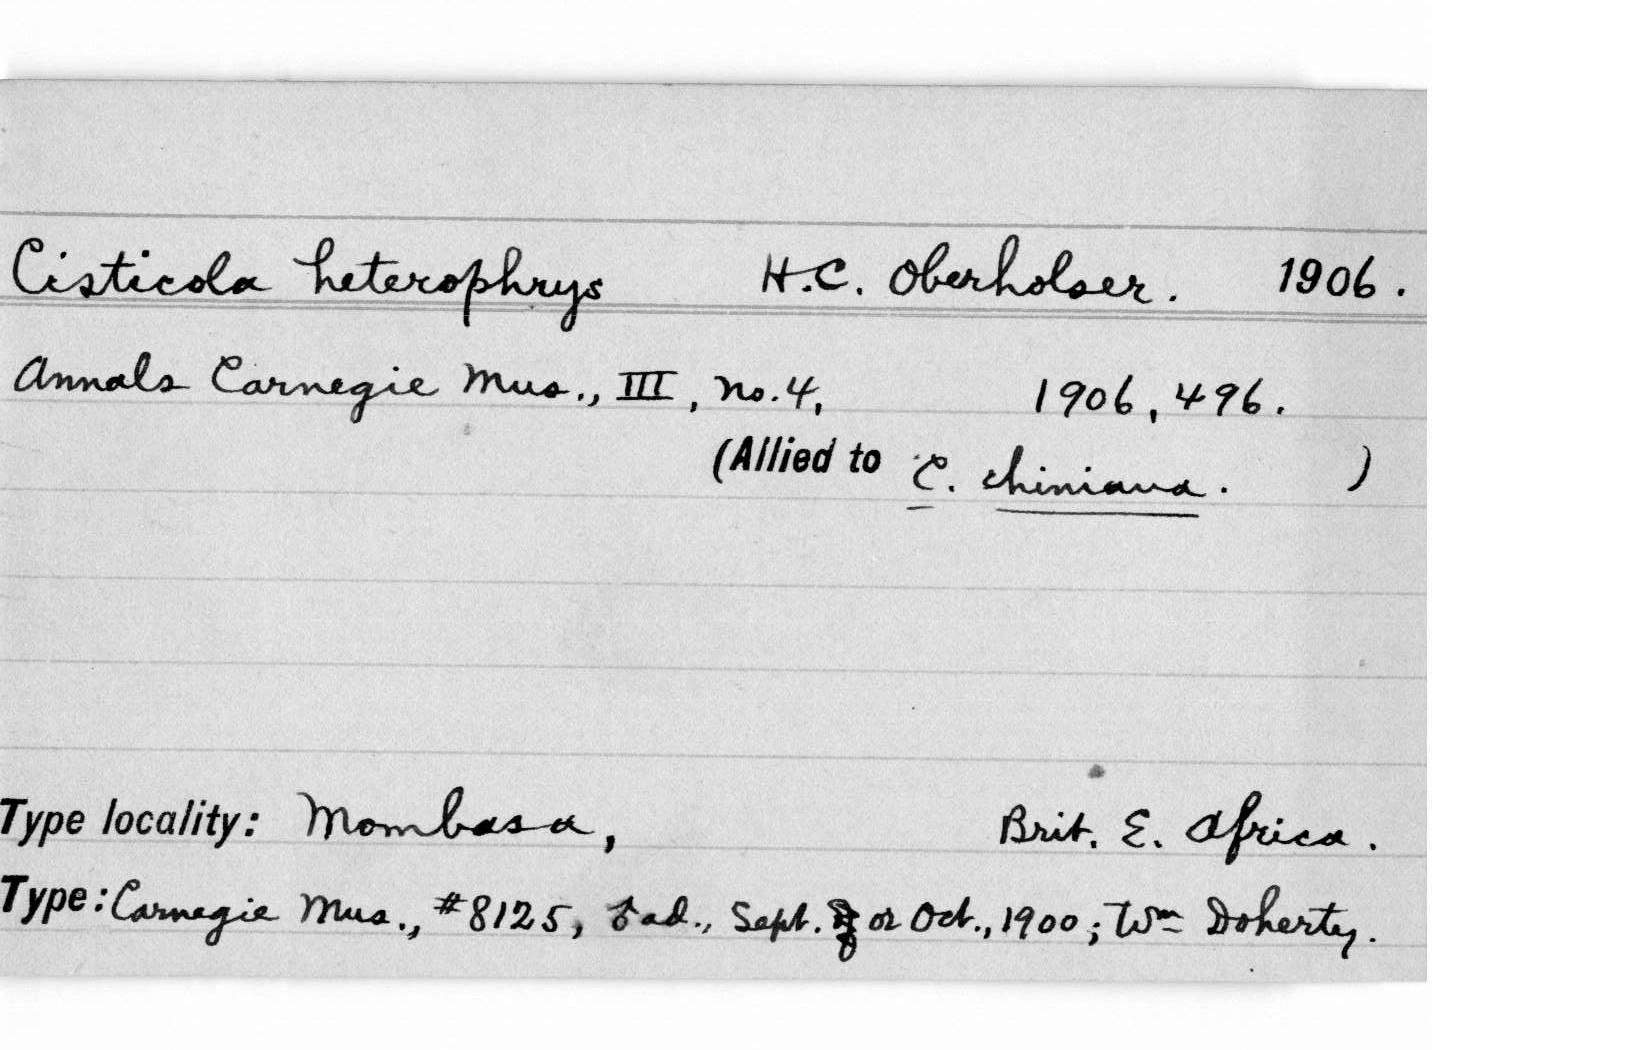 Cisticola heterophrys H.C. Oberholser. 1906.
Annals Carnegie Mus., III, no.4, 1906, 496.
(Allied to C. chiniana. )
Type locality: Mombasa, Brit. E. Africa.
Type: Carnegie Mus., #8125, ad., Sept. or Oct., 1900; Wm Doherty.